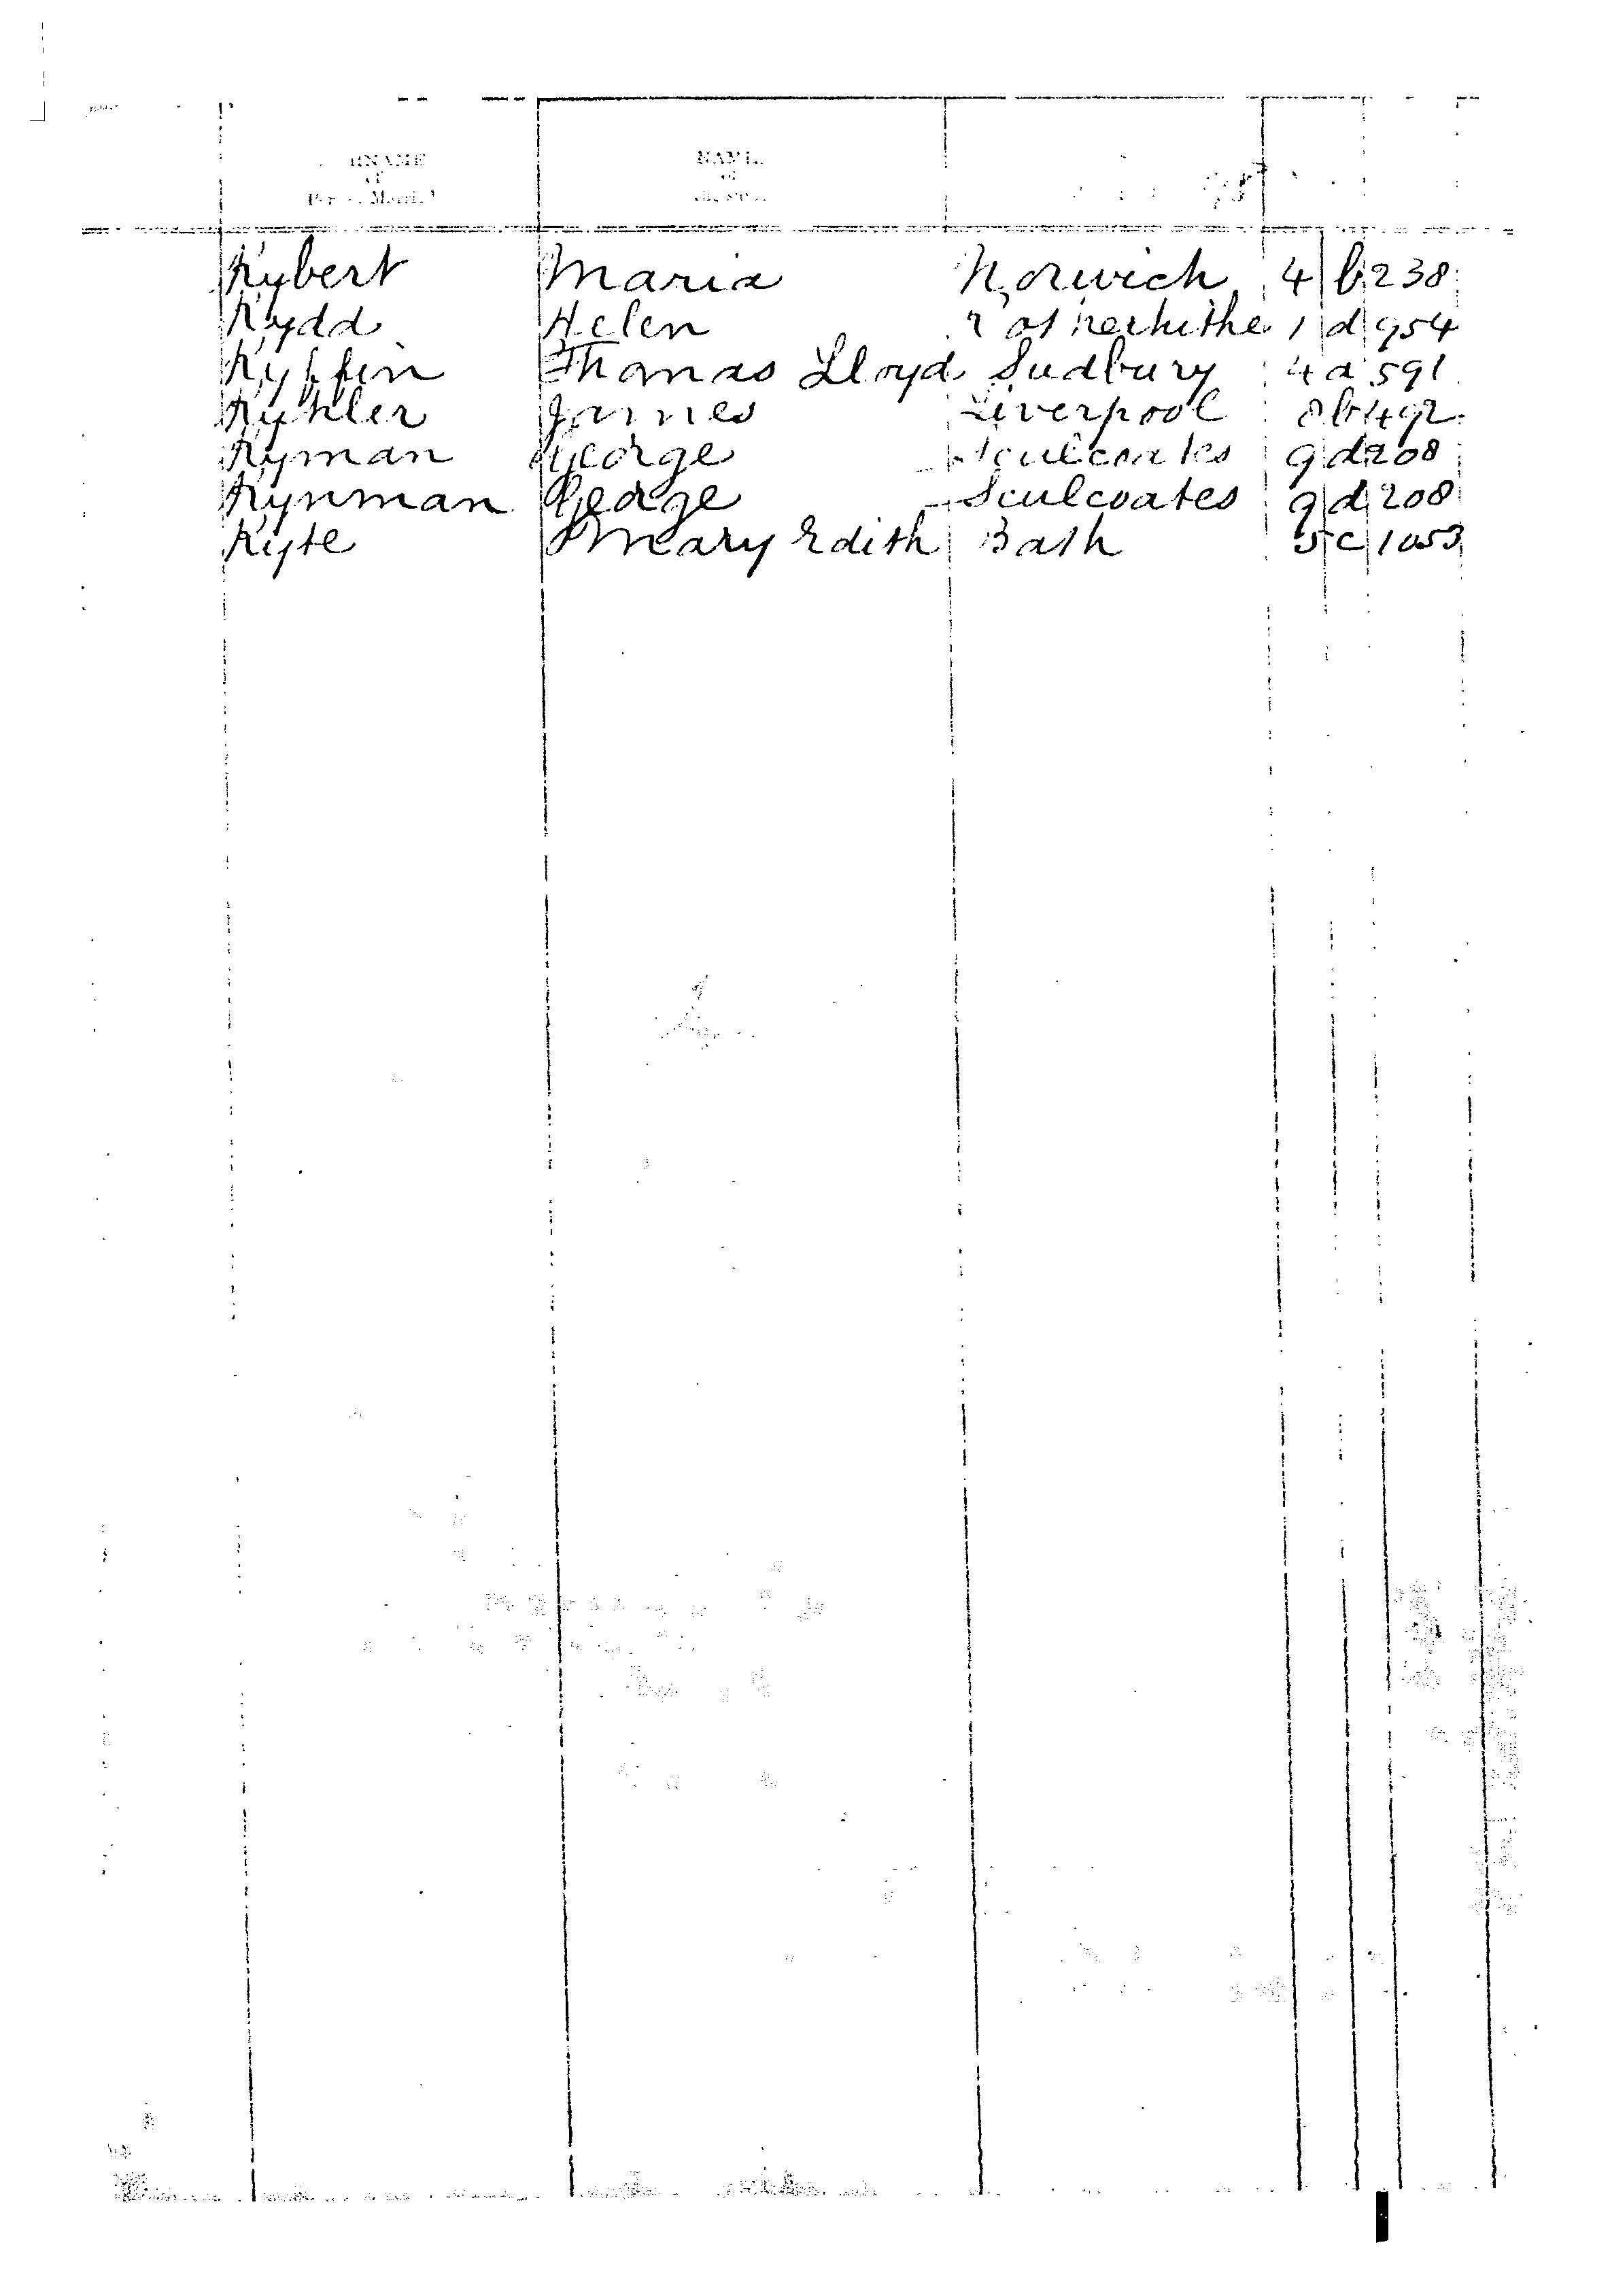 NAME
of
Kybert Maria Norwich 4 b 238
Kydd Helen Rotherhithe 1 d 954
Kyffin Thomas Lloyd Sudbury 4 a 591
James Liverpool 8 b 492
Kyman George Sculcoates 9 d 208
Kynman George Sculcoates 9 d 208
Kyte Mary Edith Bath 5 c 1053